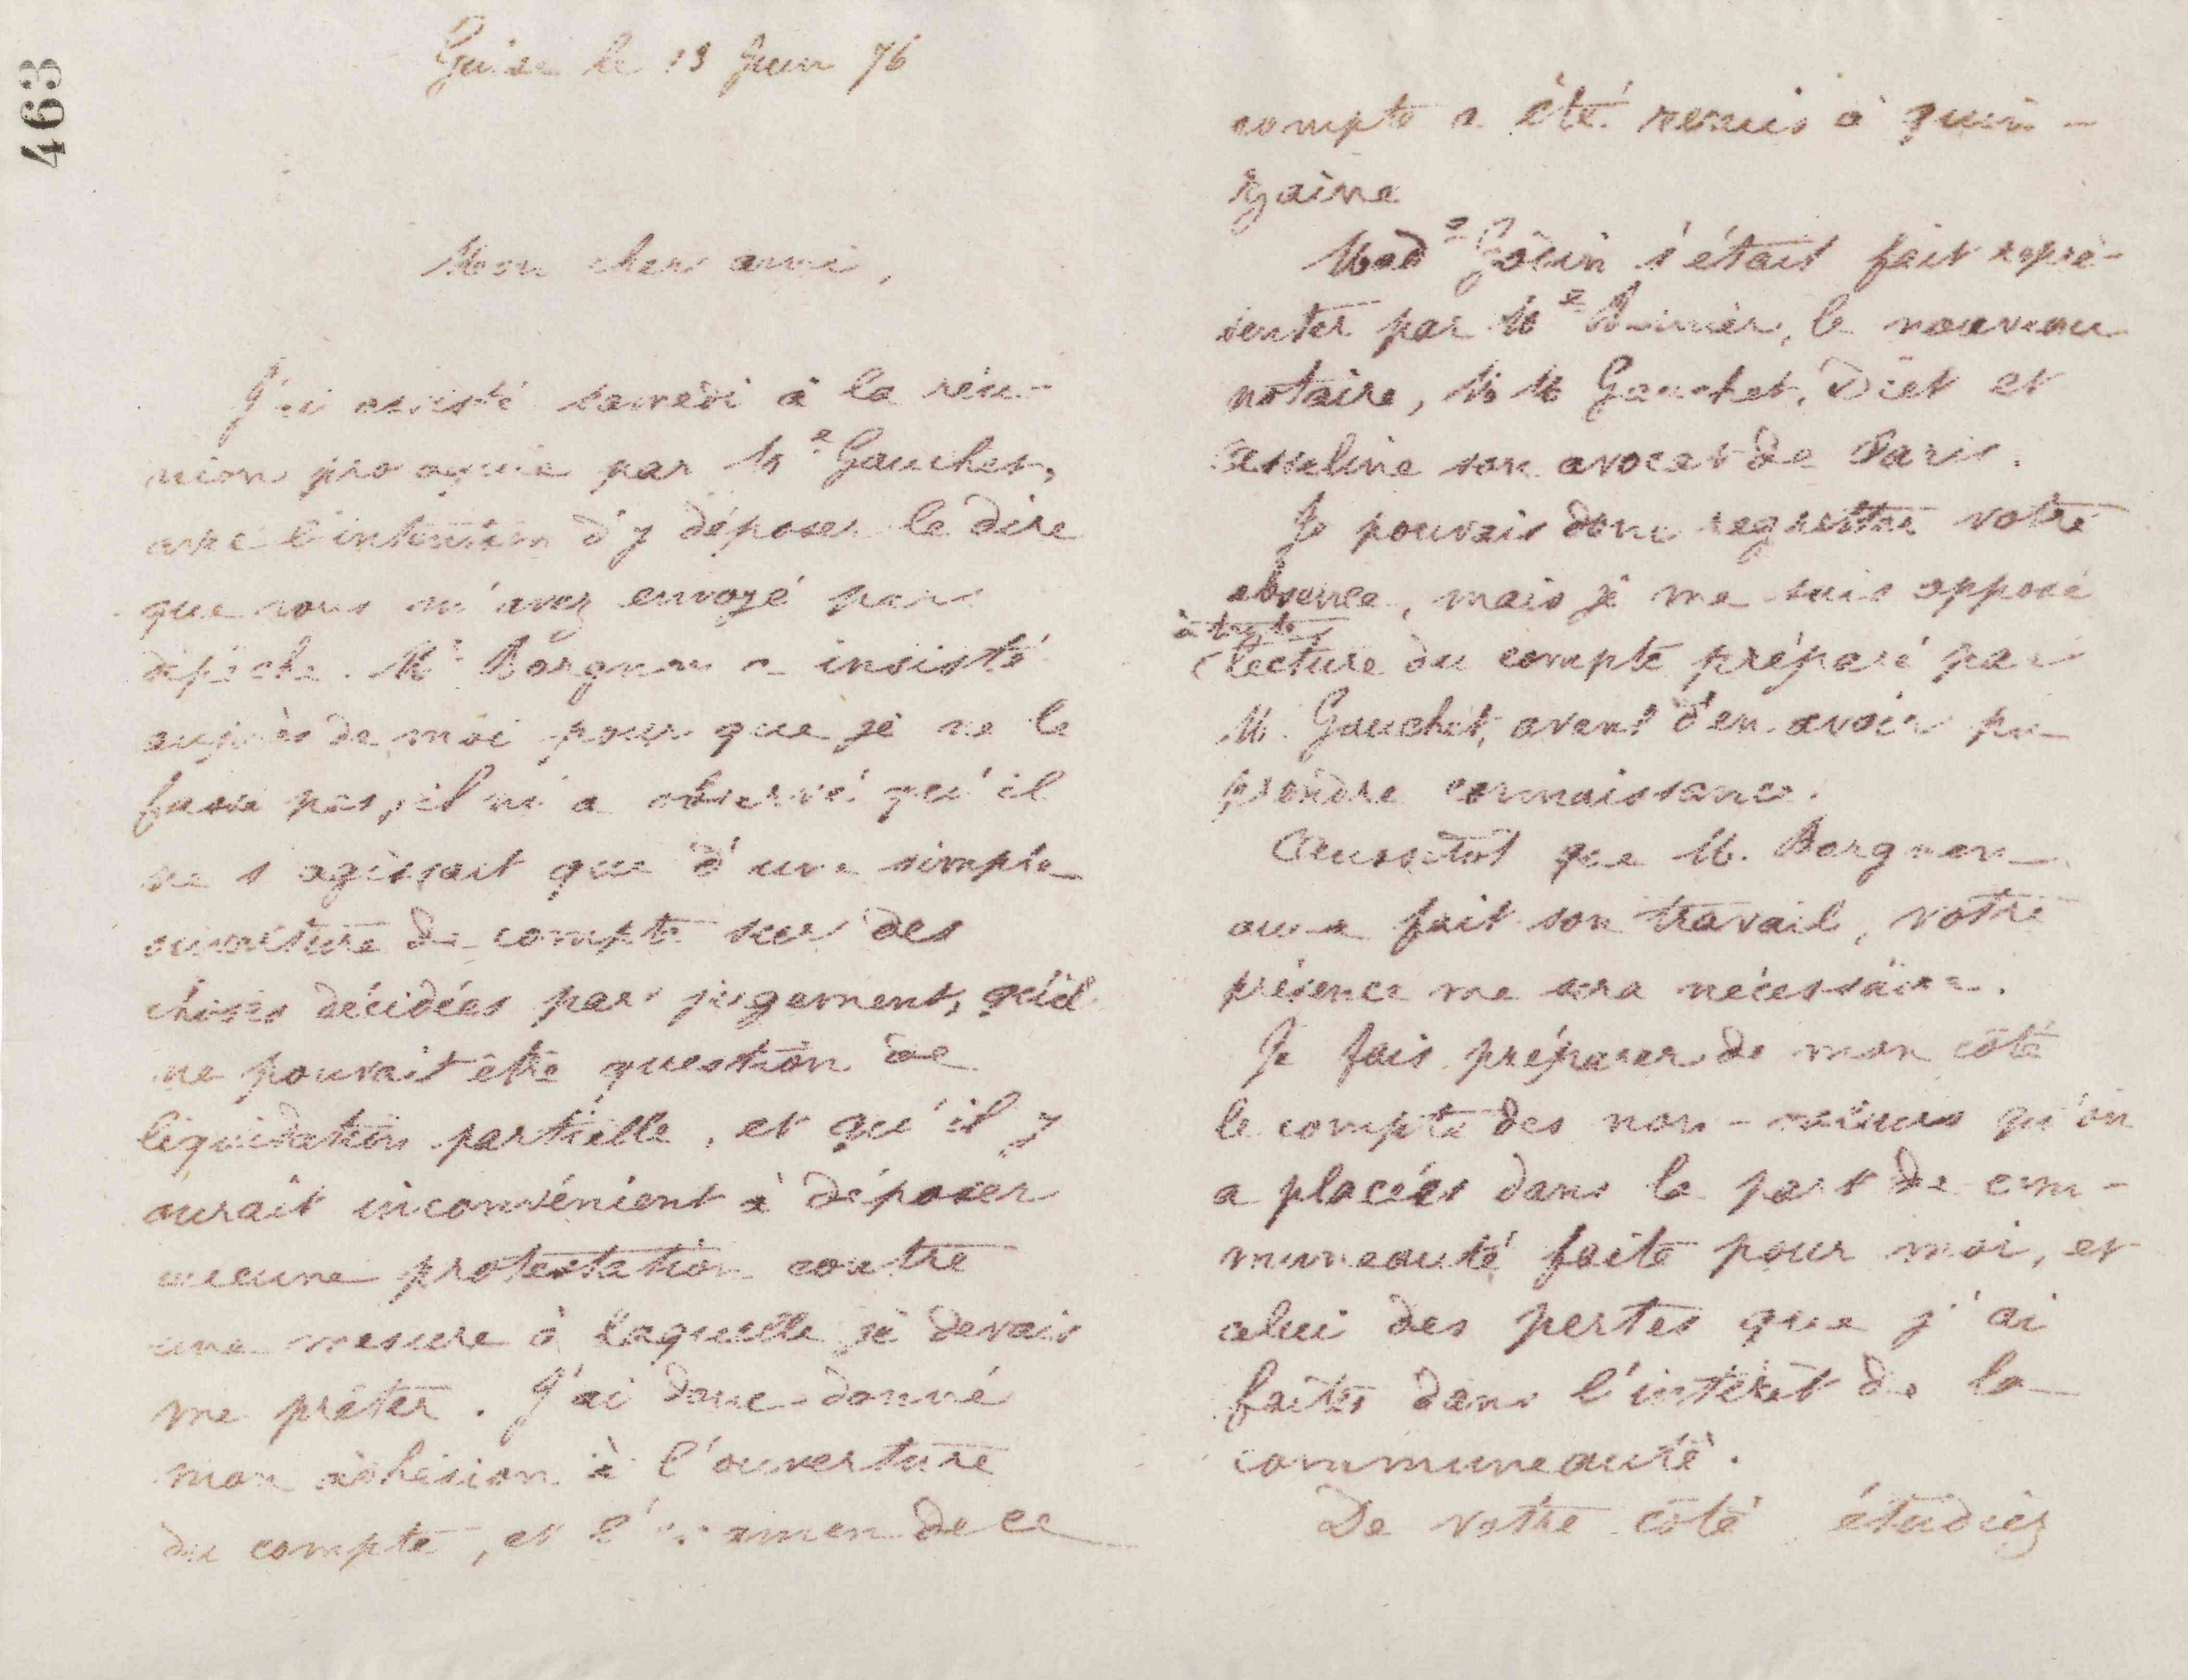 463
Guise le 13 Juin 76
Mon cher ami,
J'ai assisté samedi à la réu-
nion provoquée par Me Gauchet,
avec l'intention d'y déposer le dire
que vous m'avez envoyé par
dépêche. Mr Borgnon a insisté
auprès de moi pour que je ne le
fasse pas, il m'a observé qu'il
ne s'agissait que d'une simple
ouverture de compte sur des
choses décidées par jugement, qu'il
ne pouvait être question de
liquidation partielle, et qu'il y
aurait inconvénient à déposer
aucune protestation contre
une mesure à laquelle je devais
me prêter. J'ai donc donné
mon adhésion à l'ouverture
du compte, et l'examen de ce
compte a été remis à quin-
zaine
Made Godin s'était fait repré-
senter par Me , le nouveau
notaire, M M Gauchet, Diet et
Asseline son avocat de Paris.
Je pouvais donc regretter votre
absence, mais je me suis opposé
à toute
lecture du compte préparé par
M. Gauchet, avant d'en avoir pu
prendre connaissance.
Aussitôt que M. Borgnon
aura fait son travail, votre
présence me sera nécessaire.
Je fais préparer de mon côté
le compte des non-valeurs qu'on
a placées dans la part de com-
muneauté faite pour moi, et
celui des pertes que j'ai
faites dans l'intérêt de la
communeauté.
De votre côté étudiez